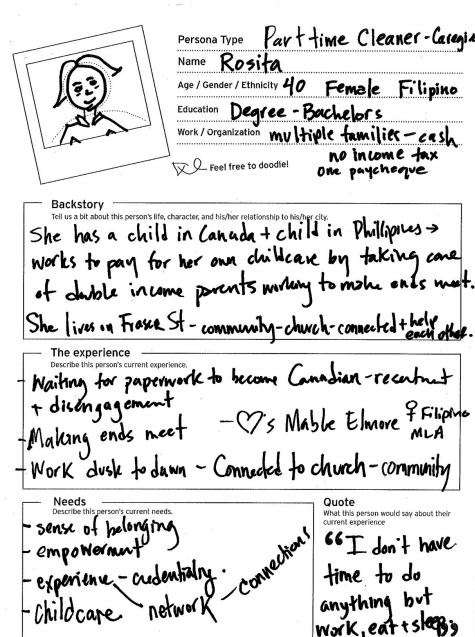 Persona Type Part time Cleaner - Caregi
Name Rosita
Age / Gender / Ethnicity 40 Female Filipino
Education Degree - Bachelors
Work / Organization multiple families - cash
no income tax
one paycheque
Feel free to doodle!
Backstory
Tell us a bit about this person's life, character, and his/her relationship to his/her city.
She has a child in Canada + child in Phillipines →
works to pay for her own childcare by taking care
of double income parents working to make ends meet.
She lives on Fraser St - community - church - connected + help
each other.
The experience
Describe this person's current experience.
- Waiting for paperwork to become Canadian - resentment
+ disengagement
- Making ends meet
- ♡'s Mable Elmore ♀ Filipino
MLA
- Work dusk to dawn - Connected to church - community
Needs
Describe this person's current needs.
- sense of belonging
- empowerment
- experience - credentialing.
- childcare
network - connections
Quote
What this person would say about their
current experience
"I don't have
time to do
anything but
work, eat + sleep"